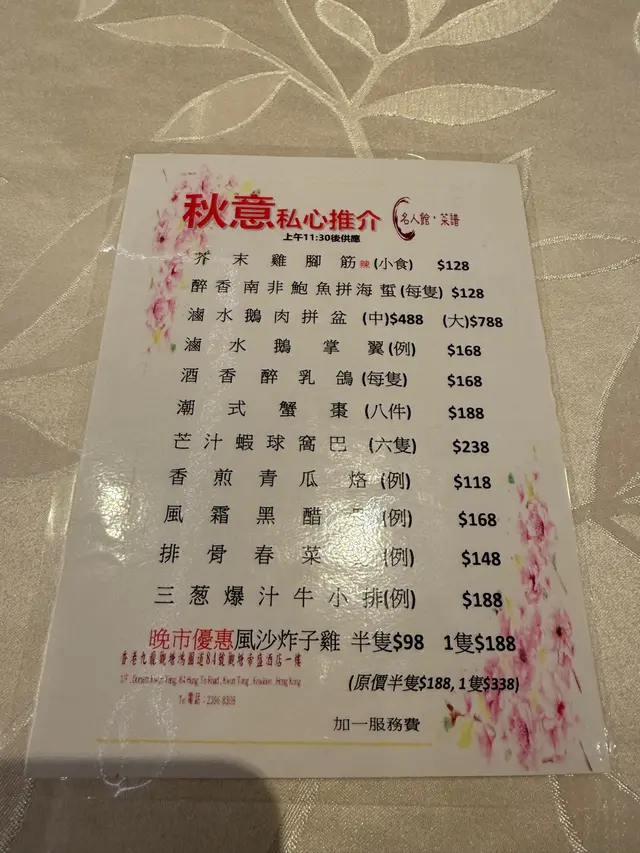 秋意私心推介 名人館·菜譜
上午11:30後供應
芥末雞腳筋辣(小食) $128
醉香南非鮑魚拼海蜇(每隻) $128
滷水鵝肉拼盆 (中)$488 (大)$788
滷水鵝掌翼(例) $168
酒香醉乳鴿(每隻) $168
潮式蟹棗(八件) $188
芒汁蝦球窩巴(六隻) $238
香煎青瓜烙(例) $118
風霜黑醋(例) $168
排骨春菜(例) $148
三葱爆汁牛小排(例) $188
晚市優惠風沙炸子雞 半隻$98 1隻$188
香港九龍觀塘鴻圖道84號觀塘帝盛酒店一樓
(原價半隻$188, 1隻$338)
1/F., Dorsett Kwun Tong, 84 Hung To Road, Kwun Tong, Kowloon, Hong Kong
Tel 電話 - 2396 8308
加一服務費